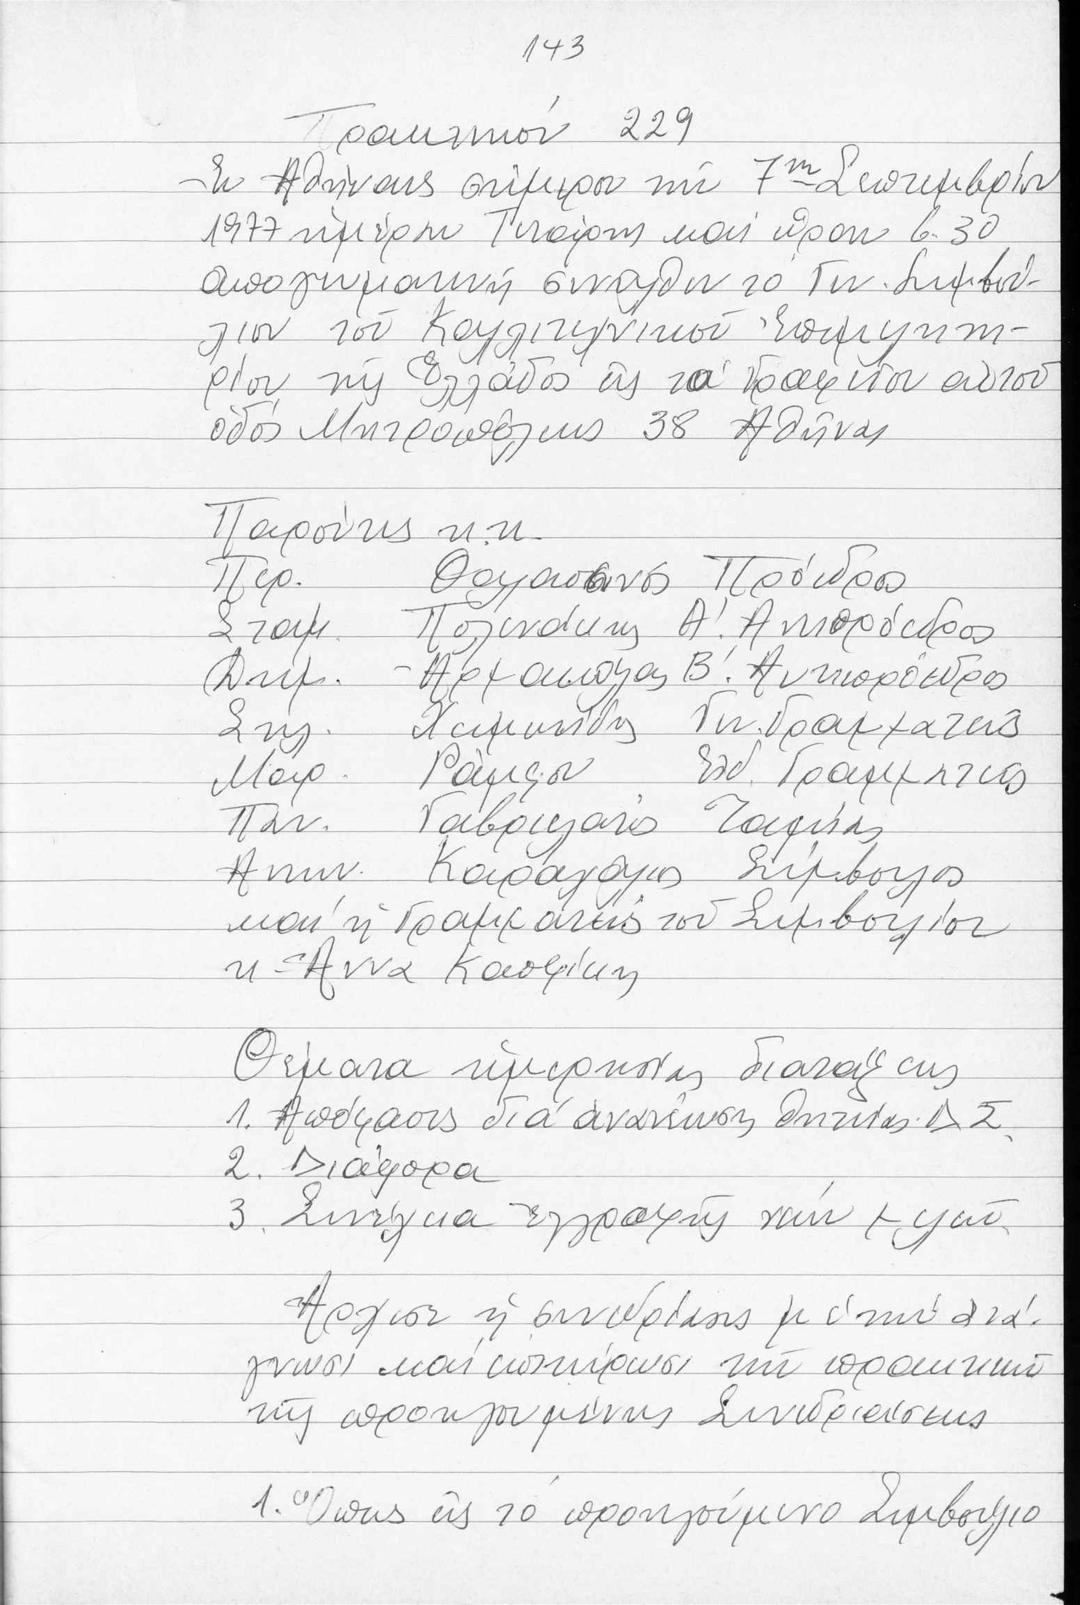 143
Πρακτικόν 229
Ἐν Ἀθήναις σήμερον τήν 7ην Σεπτεμβρίου
1977 ἡμέραν Τετάρτη καί ὥραν 6.30
ἀπογευματινή συνῆλθεν τό Γεν. Συμβού-
λιον τοῦ Καλλιτεχνικοῦ Ἐπιμελητη-
ρίου τῆς Ἑλλάδος εἰς τά Γραφεῖον αὐτοῦ
ὁδός Μητροπόλεως 38 Ἀθήνας
Παρόντες κ.κ.
Περ. Θαλασσινός Πρόεδρος
Σταμ. Πολενάκης Α΄. Ἀντιπρόεδρος
Δημ. Ἀρχανιώλας Β΄. Ἀντιπρόεδρος
Στυλ. Γεν. Γραμματεύς
Μαρ. Εἰδ. Γραμματεύς
Παν. Γαβρελάτος Ταμίας
Ἀντων. Καραχάλιος Σύμβουλος
καί ἡ Γραμματεύς τοῦ Συμβουλίου
κ Ἄννα Καψάσκη
Θέματα ἡμερησίας διατάξεως
1. Ἀπόφασις διά ἀνανέωση θητείας Δ Σ.
2. Διάφορα
3. Συνέχεια ἐγγραφῆς νέων μελῶν.
Ἄρχισε ἡ συνεδρίασις μέ τήν ἀνά-
γνωση καί ἐπικύρωση τῶν πρακτικῶν
τῆς προηγουμένης Συνεδριάσεως
1. Ὅπως εἰς τό προηγούμενο Συμβούλιο